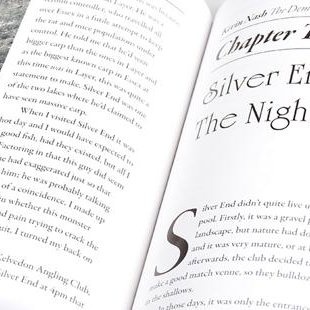 controller, who travelled all
over Essex in a futile attempt to keep
the rat and mice populations under
control. He told me that he'd seen
bigger carp than the ones in Layer and
as the biggest known carp in Essex at
this time was in Layer, this was quite a
statement to make. Silver End was one
of the two lakes where he'd claimed to
have seen massive carp.
When I visited Silver End it was
hot day and I would have expected to
good fish, had they existed, but all I
Factoring in that this guy did seem
he had exaggerated just so that
him; he was probably talking
of a coincidence. I made up
whether this monster
and pain trying to crack the
uit. I turned my back on
Kelvedon Angling Club,
Silver End at 4pm that
Kevin Nash The Dem
Chapter T
Silver En
The Nigh
Silver End didn't quite live u
pool. Firstly, it was a gravel p
landscape, but nature had do
and it was very mature, or at
afterwards, the club decided t
make a good match venue, so they bulldoz
the shallows.
In those days, it was only the entranc